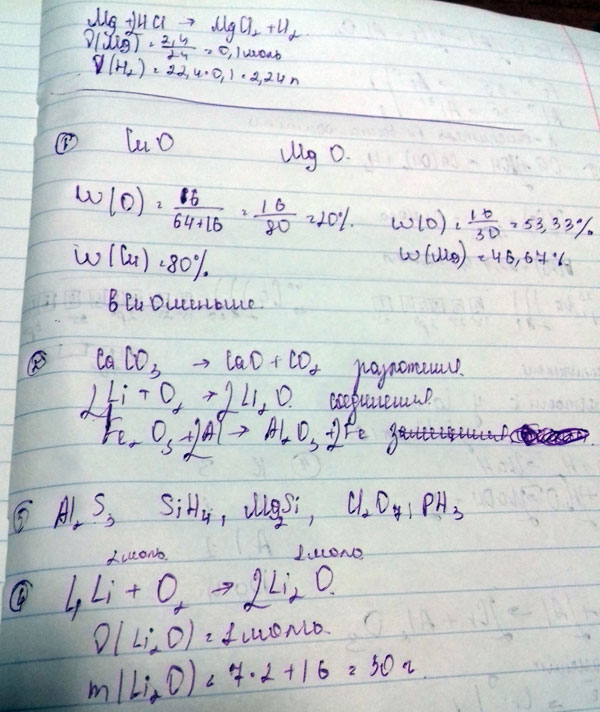 Mg + 2HCl → MgCl₂ + H₂
ν(Mg) = 2,4/24 = 0,1 моль
ν(H₂) = 22,4 · 0,1 = 2,24 л
① CuO MgO.
W(O) = 16/64+16 = 16/80 = 20% W(O) = 16/30 = 53,33%
W(Cu) = 80% W(Mg) = 46,67%
в CuO меньше
② CaCO₃ → CaO + CO₂ разложения
2Li + O₂ → 2Li₂O. соединения
Fe₂O₃ + 2Al → Al₂O₃ + 2Fe замещения
③ Al₂S₃ SiH₄, Mg₂Si, Cl₂O₇, PH₃
2 моль 2 моль
④ 4Li + O₂ → 2Li₂O.
ν(Li₂O) = 2 моль
m(Li₂O) = 7·2 + 16 = 30 г.